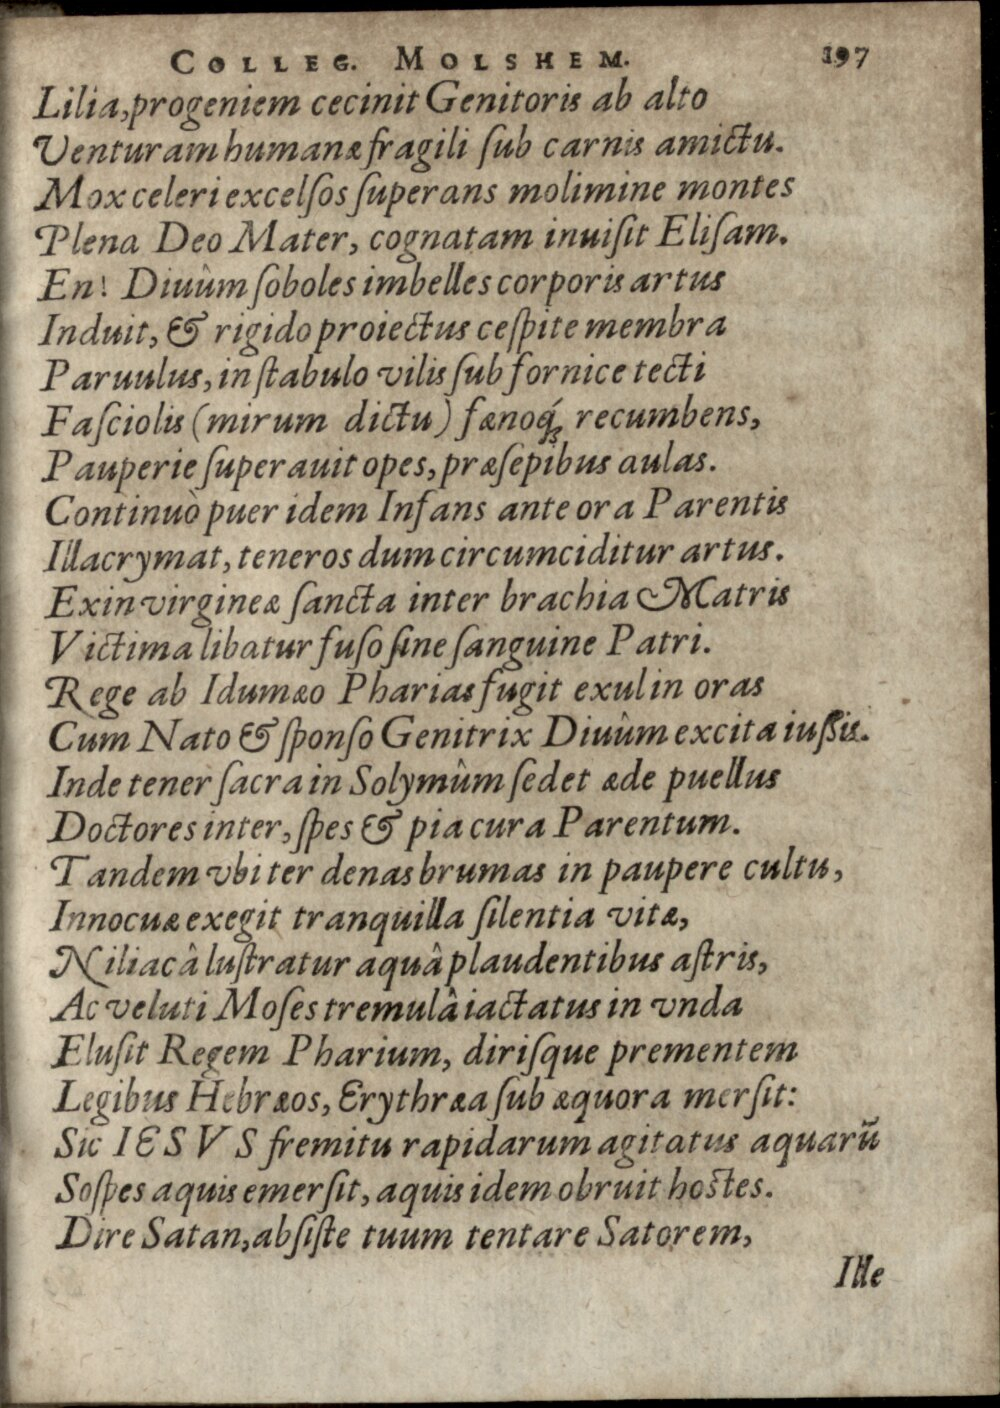 COLLEG. MOLSHEM. 197
Lilia, progeniem cecinit Genitoris ab alto
Venturam humanæ fragili ſub carnis amictu.
Mox celeri excelſos ſuperans molimine montes
Plena Deo Mater, cognatam inuiſit Eliſam.
En! Diuûm ſoboles imbelles corporis artus
Induit, & rigido proiectus ceſpite membra
Paruulus, in ſtabulo vilis ſub fornice tecti
Faſciolis (mirum dictu) fœnoq́; recumbens,
Pauperie ſuperauit opes, præſepibus aulas.
Continuò puer idem Infans ante ora Parentis
Illacrymat, teneros dum circumciditur artus.
Exin virgineæ ſancta inter brachia Matris
Victima libatur fuſo ſine ſanguine Patri.
Rege ab Idumæo Pharias fugit exul in oras
Cum Nato & ſponſo Genitrix Diuûm excita iuſſis.
Inde tener ſacra in Solymûm ſedet æde puellus
Doctores inter, ſpes & pia cura Parentum.
Tandem vbi ter denas brumas in paupere cultu,
Innocuæ exegit tranquilla ſilentia vitæ,
Niliacâ luſtratur aquâ plaudentibus aſtris,
Ac veluti Moſes tremulâ iactatus in vnda
Eluſit Regem Pharium, diriſque prementem
Legibus Hebræos, Erythræa ſub æquora merſit:
Sic IESVS fremitu rapidarum agitatus aquarũ
Soſpes aquis emerſit, aquis idem obruit hoſtes.
Dire Satan, abſiſte tuum tentare Satorem,
Ille